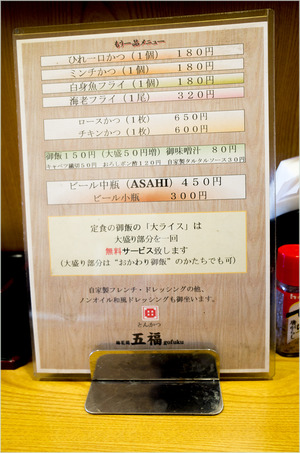 一品メニュー
ひれ一口かつ（1個） 180円
ミンチかつ（1個） 180円
白身魚フライ（1個） 180円
海老フライ（1尾） 320円
ロースかつ（1枚） 650円
チキンかつ（1枚） 600円
御飯150円（大盛50円増）御味噌汁 80円
キャベツ補充50円 おろしポン酢120円 自家製タルタルソース30円
ビール中瓶（ASAHI）450円
ビール小瓶 300円
定食の御飯の「大ライス」は
大盛り部分を一回
無料サービス致します
（大盛り部分は“おかわり御飯”のかたちでも可）
自家製フレンチ・ドレッシングの他、
ノンオイル和風ドレッシングも御座います。
とんかつ
五福 gofuku